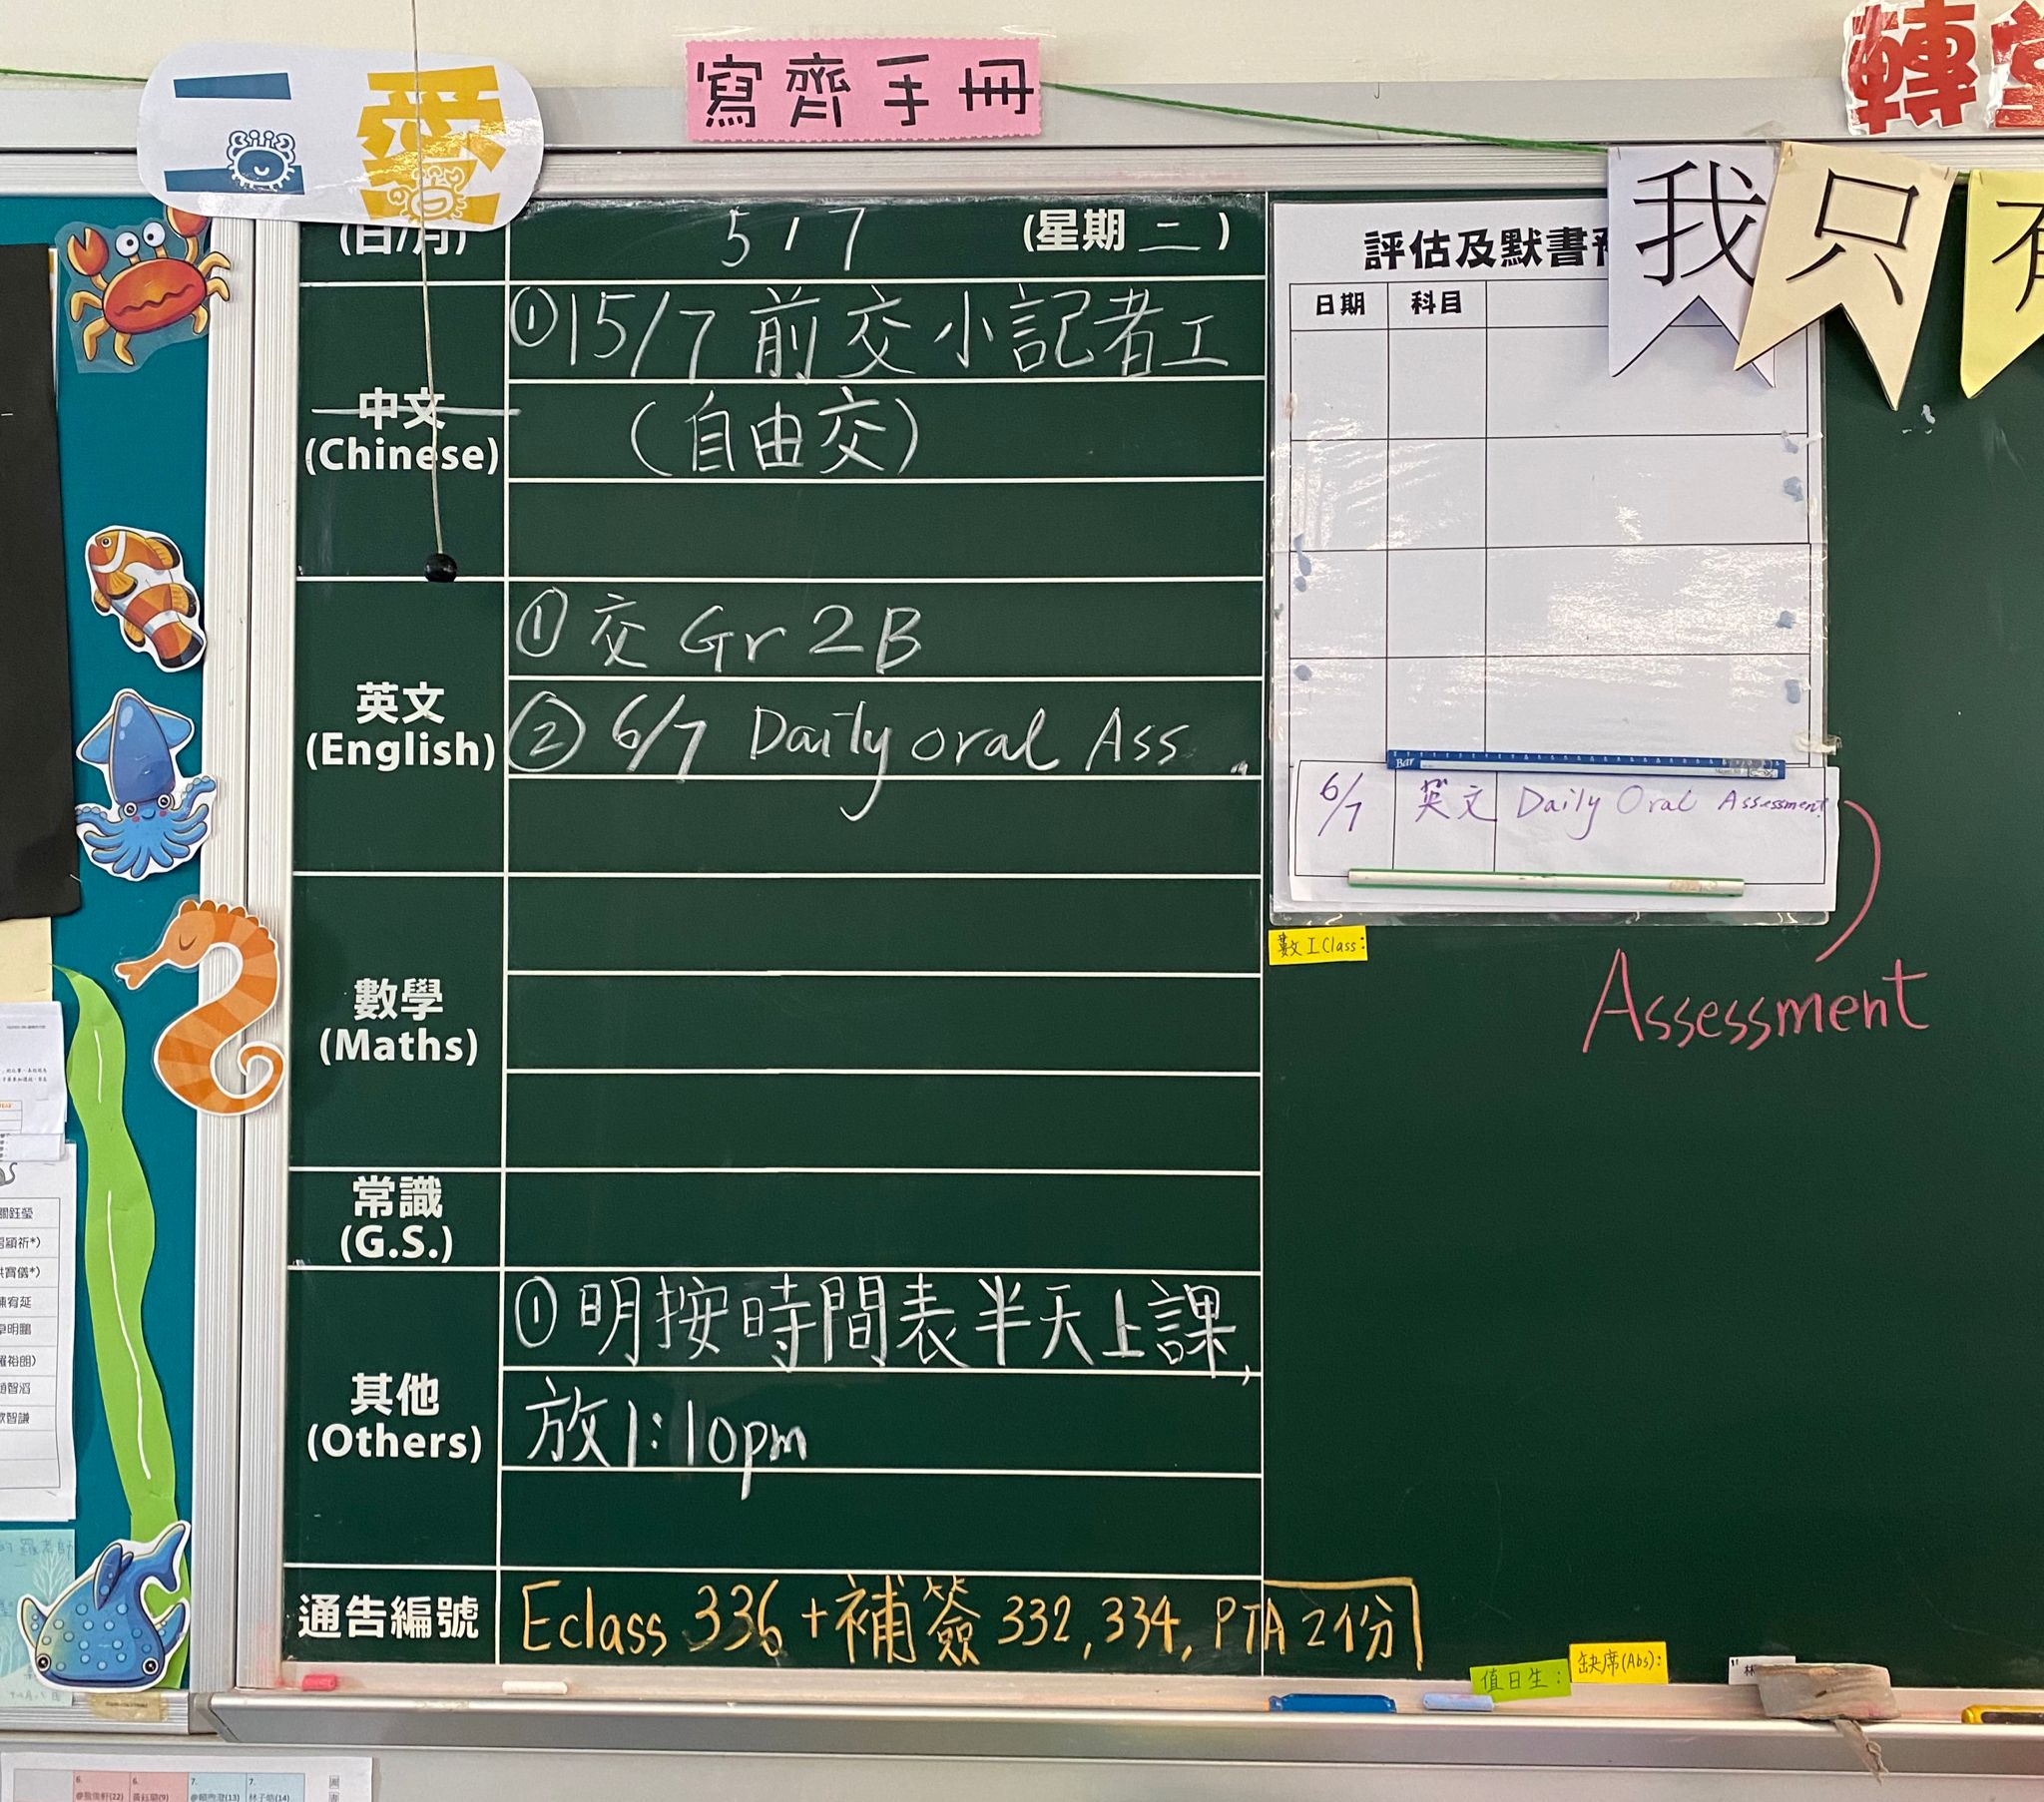 二愛
寫齊手冊
轉
我只
(日/月) 5/7 (星期二)
中文
(Chinese)
①15/7前交小記者工
(自由交)
英文
(English)
①交 Gr 2B
②6/7 Daily oral Ass.
數學
(Maths)
常識
(G.S.)
其他
(Others)
①明按時間表半天上課,
放1:10pm
通告編號
Eclass 336+補簽332,334, PTA 2份
評估及默書
日期 科目
Bar
6/7 英文 Daily Oral Assessment
數工Class:
Assessment
值日生:
缺席(Abs):